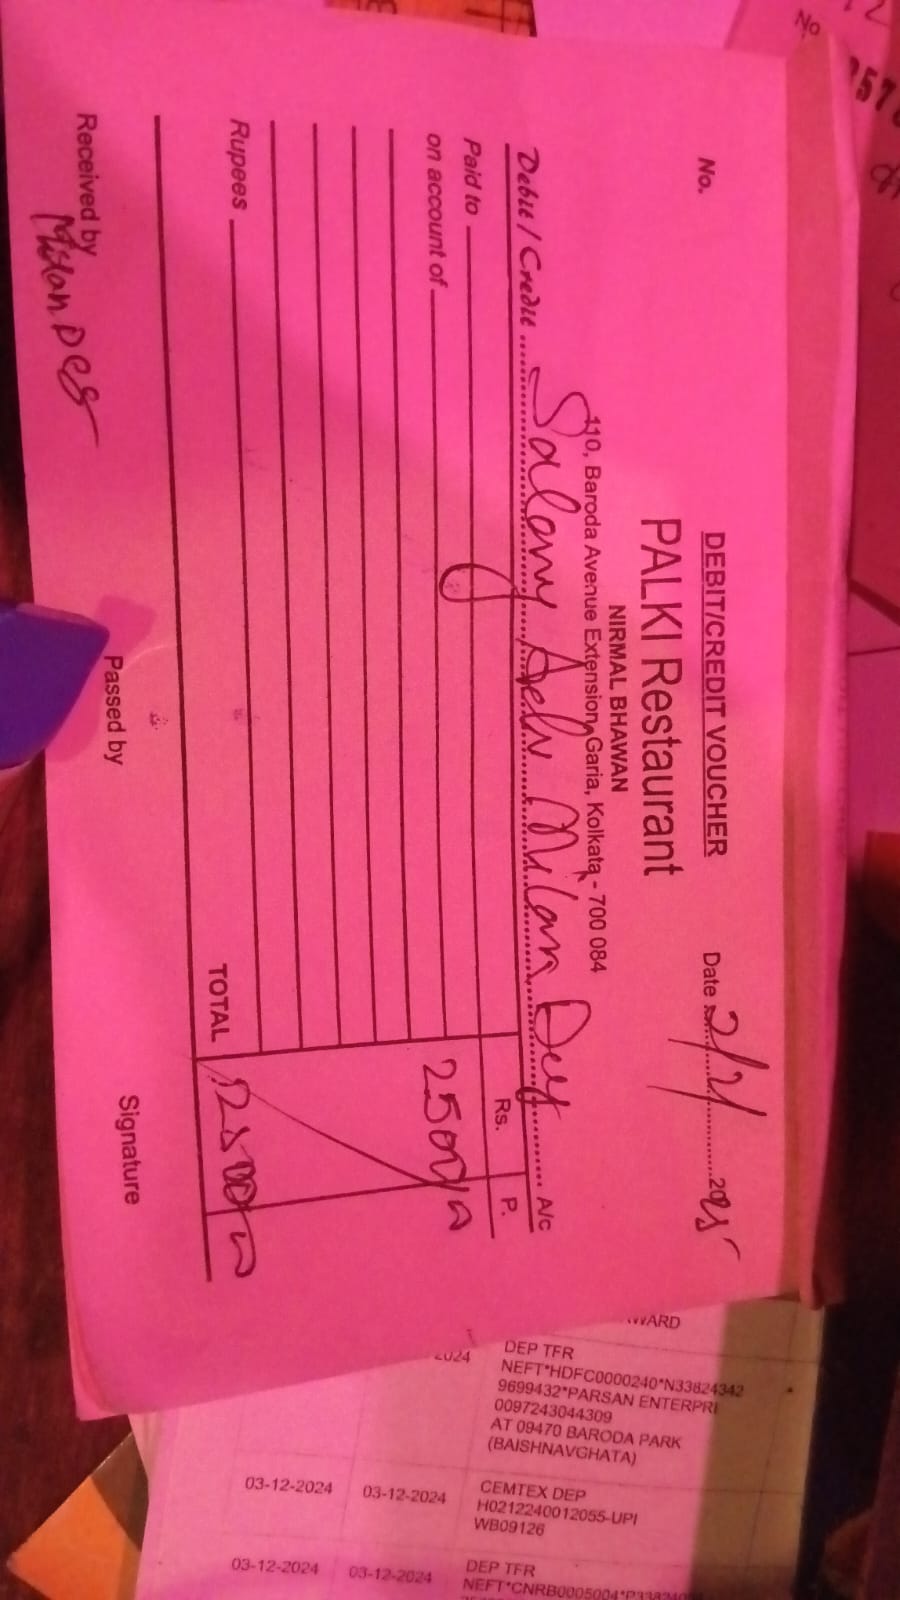 DEBIT/CREDIT VOUCHER
No.
Date 2/2/ 2025
PALKI Restaurant
NIRMAL BHAWAN
110, Baroda Avenue Extension, Garia, Kolkata - 700 084
Debit / Credit Salary Adv Milan Dey A/c
Rs. P.
Paid to
on account of 2500/-
Rupees
TOTAL 2500/-
Received by Passed by Signature
Milan Dey
No
WARD
2024 DEP TFR
NEFT*HDFC0000240*N33824342
9699432*PARSAN ENTERPRI
0097243044309
AT 09470 BARODA PARK
(BAISHNAVGHATA)
03-12-2024 03-12-2024 CEMTEX DEP
H0212240012055-UPI
WB09126
03-12-2024 03-12-2024 DEP TFR
NEFT*CNRB0005004*